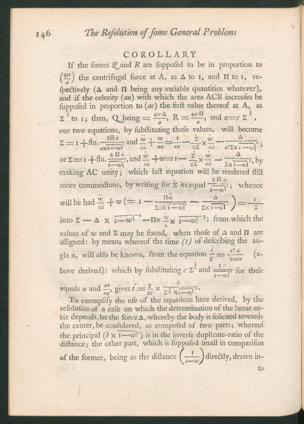 146 The Resolution of some General Problems
COROLLARY
If the forces Q and R are supposed to be in proportion to
the centrifugal force at A, as Δ to 1, and Π to 1, re-
spectively (Δ and Π being any variable quantities whatever),
and if the celerity (au) with which the area ACB increases be
supposed in proportion to (ac) the first value thereof at A, as
to 1; then, Q being = , R = , and u = c Σ ,
our two equations, by substituting these values, will become
making AC unity; which last equation will be rendered still
more commodious, by writing for Σ its equal ; whence
will be had
into Σ — Δ × ; from which the
values of w and Σ may be found, when those of Δ and Π are
assigned: by means whereof the time (t) of describing the an-
gle z, will also be known, from the equation (a-
bove derived): which by substituting c Σ and for their
equals u and , gives
To exemplify the use of the equations here derived, by the
resolution of a case on which the determination of the lunar or-
bit depends, let the force Δ, whereby the body is solicited towards
the center, be considered, as composed of two parts; whereof
the principal (b × ) is in the inverse duplicate-ratio of the
distance; the other part, which is supposed small in comparison
of the former, being as the distance (1/1—w) directly, drawn in-
to